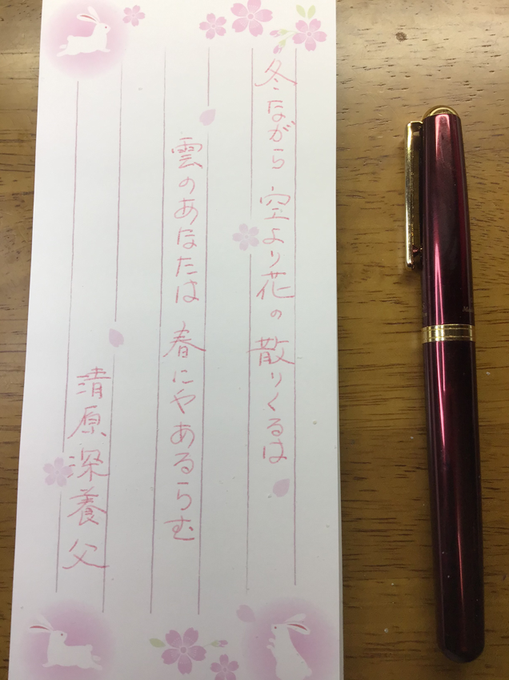 冬ながら 空より花の 散りくるは
雲のあなたは 春にやあるらむ
清原深養父